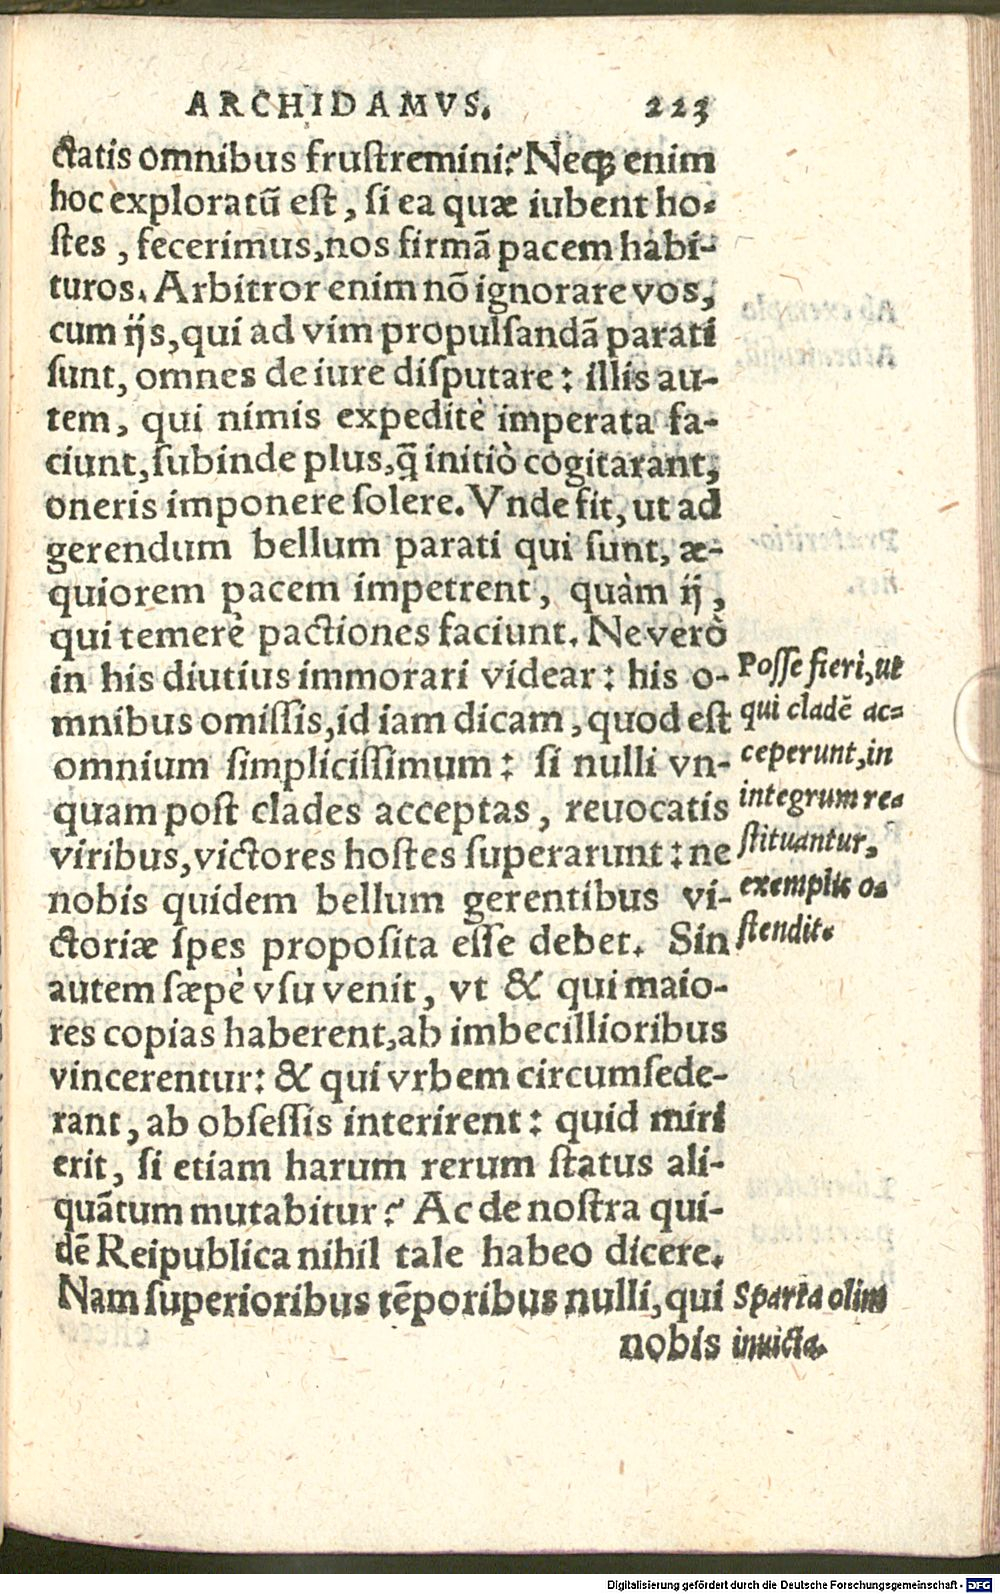 ARCHIDAMVS. 223
ctatis omnibus frustremini? Neqȝ enim
hoc exploratũ est, si ea quæ iubent ho-
stes, fecerimus, nos firmã pacem habi-
turos. Arbitror enim nõ ignorare vos,
cum ijs, qui ad vim propulsandã parati
sunt, omnes de iure disputare: illis au-
tem, qui nimis expeditè imperata fa-
ciunt, subinde plus, q̃ initiò cogitarant,
oneris imponere solere. Vnde fit, ut ad
gerendum bellum parati qui sunt, æ-
quiorem pacem impetrent, quàm ij,
qui temerè pactiones faciunt. Ne verò
in his diutius immorari videar: his o-
mnibus omissis, id iam dicam, quod est
omnium simplicissimum: si nulli vn-
quam post clades acceptas, reuocatis
viribus, victores hostes superarunt: ne
nobis quidem bellum gerentibus vi-
ctoriæ spes proposita esse debet. Sin
autem sæpè vsu venit, vt & qui maio-
res copias haberent, ab imbecillioribus
vincerentur: & qui vrbem circumsede-
rant, ab obsessis interirent: quid miri
erit, si etiam harum rerum status ali-
quãtum mutabitur? Ac de nostra qui-
dẽ Reipublica nihil tale habeo dicere.
Nam superioribus tẽporibus nulli, qui
nobis
Posse fieri, ut
qui cladẽ ac-
ceperunt, in
integrum re-
stituantur,
exemplis o-
stendit.
Sparta olim
inuicta.
Digitalisierung gefördert durch die Deutsche Forschungsgemeinschaft - DFG